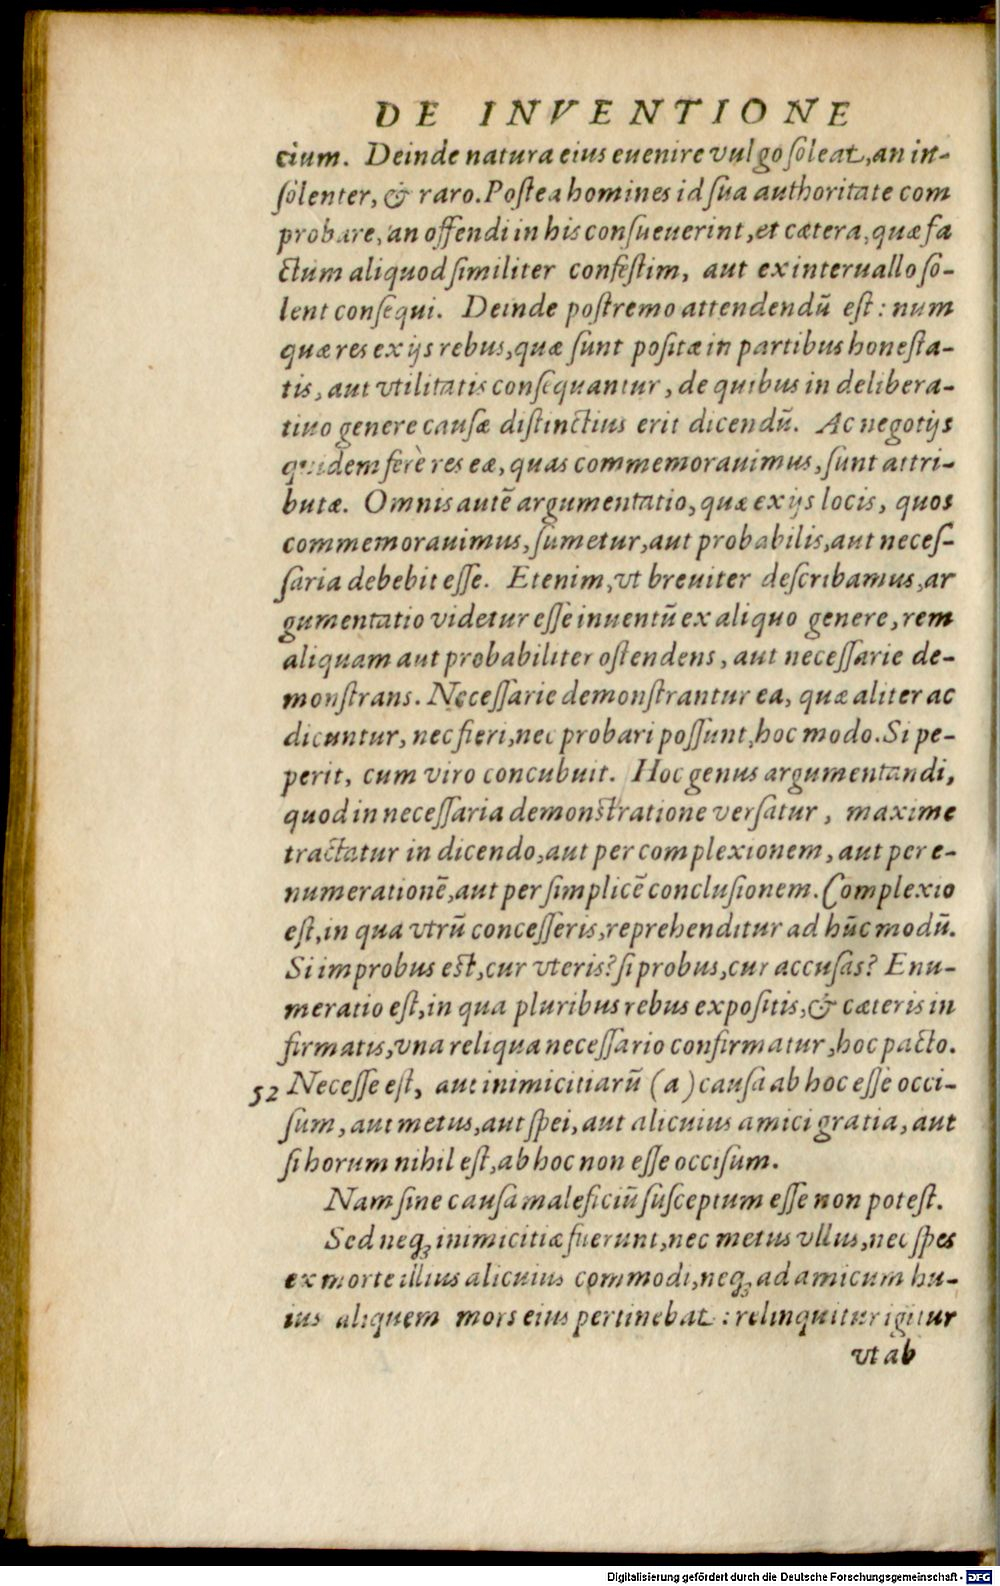 DE INVENTIONE
cium. Deinde natura eius euenire vulgo soleat, an in-
solenter, & raro. Postea homines id sua authoritate com
probare, an offendi in his consueuerint, et cætera, quæ fa
ctum aliquod similiter confestim, aut ex interuallo so-
lent consequi. Deinde postremo attendendū est: num
quæ res ex ijs rebus, quæ sunt positæ in partibus honesta-
tis, aut vtilitatis consequantur, de quibus in delibera-
tiuo genere causæ distinctius erit dicendū. Ac negotijs
quidem ferè res eæ, quas commemorauimus, sunt attri-
butæ. Omnis autē argumentatio, quæ ex ijs locis, quos
commemorauimus, sumetur, aut probabilis, aut neces-
saria debebit esse. Etenim, vt breuiter describamus, ar
gumentatio videtur esse inuentū ex aliquo genere, rem
aliquam aut probabiliter ostendens, aut necessarie de-
monstrans. Necessarie demonstrantur ea, quæ aliter ac
dicuntur, nec fieri, nec probari possunt, hoc modo. Si pe-
perit, cum viro concubuit. Hoc genus argumentandi,
quod in necessaria demonstratione versatur, maxime
tractatur in dicendo, aut per complexionem, aut per e-
numerationē, aut per simplicē conclusionem. Complexio
est, in qua vtrū concesseris, reprehenditur ad hūc modū.
Si improbus est, cur vteris? si probus, cur accusas? Enu-
meratio est, in qua pluribus rebus expositis, & cæteris in
firmatis, vna reliqua necessario confirmatur, hoc pacto.
52 Necesse est, aut inimicitiarū (a) causa ab hoc esse occi-
sum, aut metus, aut spei, aut alicuius amici gratia, aut
si horum nihil est, ab hoc non esse occisum.
Nam sine causa maleficiū susceptum esse non potest.
Sed neqꝫ inimicitiæ fuerunt, nec metus vllus, nec spes
ex morte illius alicuius commodi, neqꝫ ad amicum hu-
ius aliquem mors eius pertinebat: relinquitur igitur
vt ab
Digitalisierung gefördert durch die Deutsche Forschungsgemeinschaft - DFG